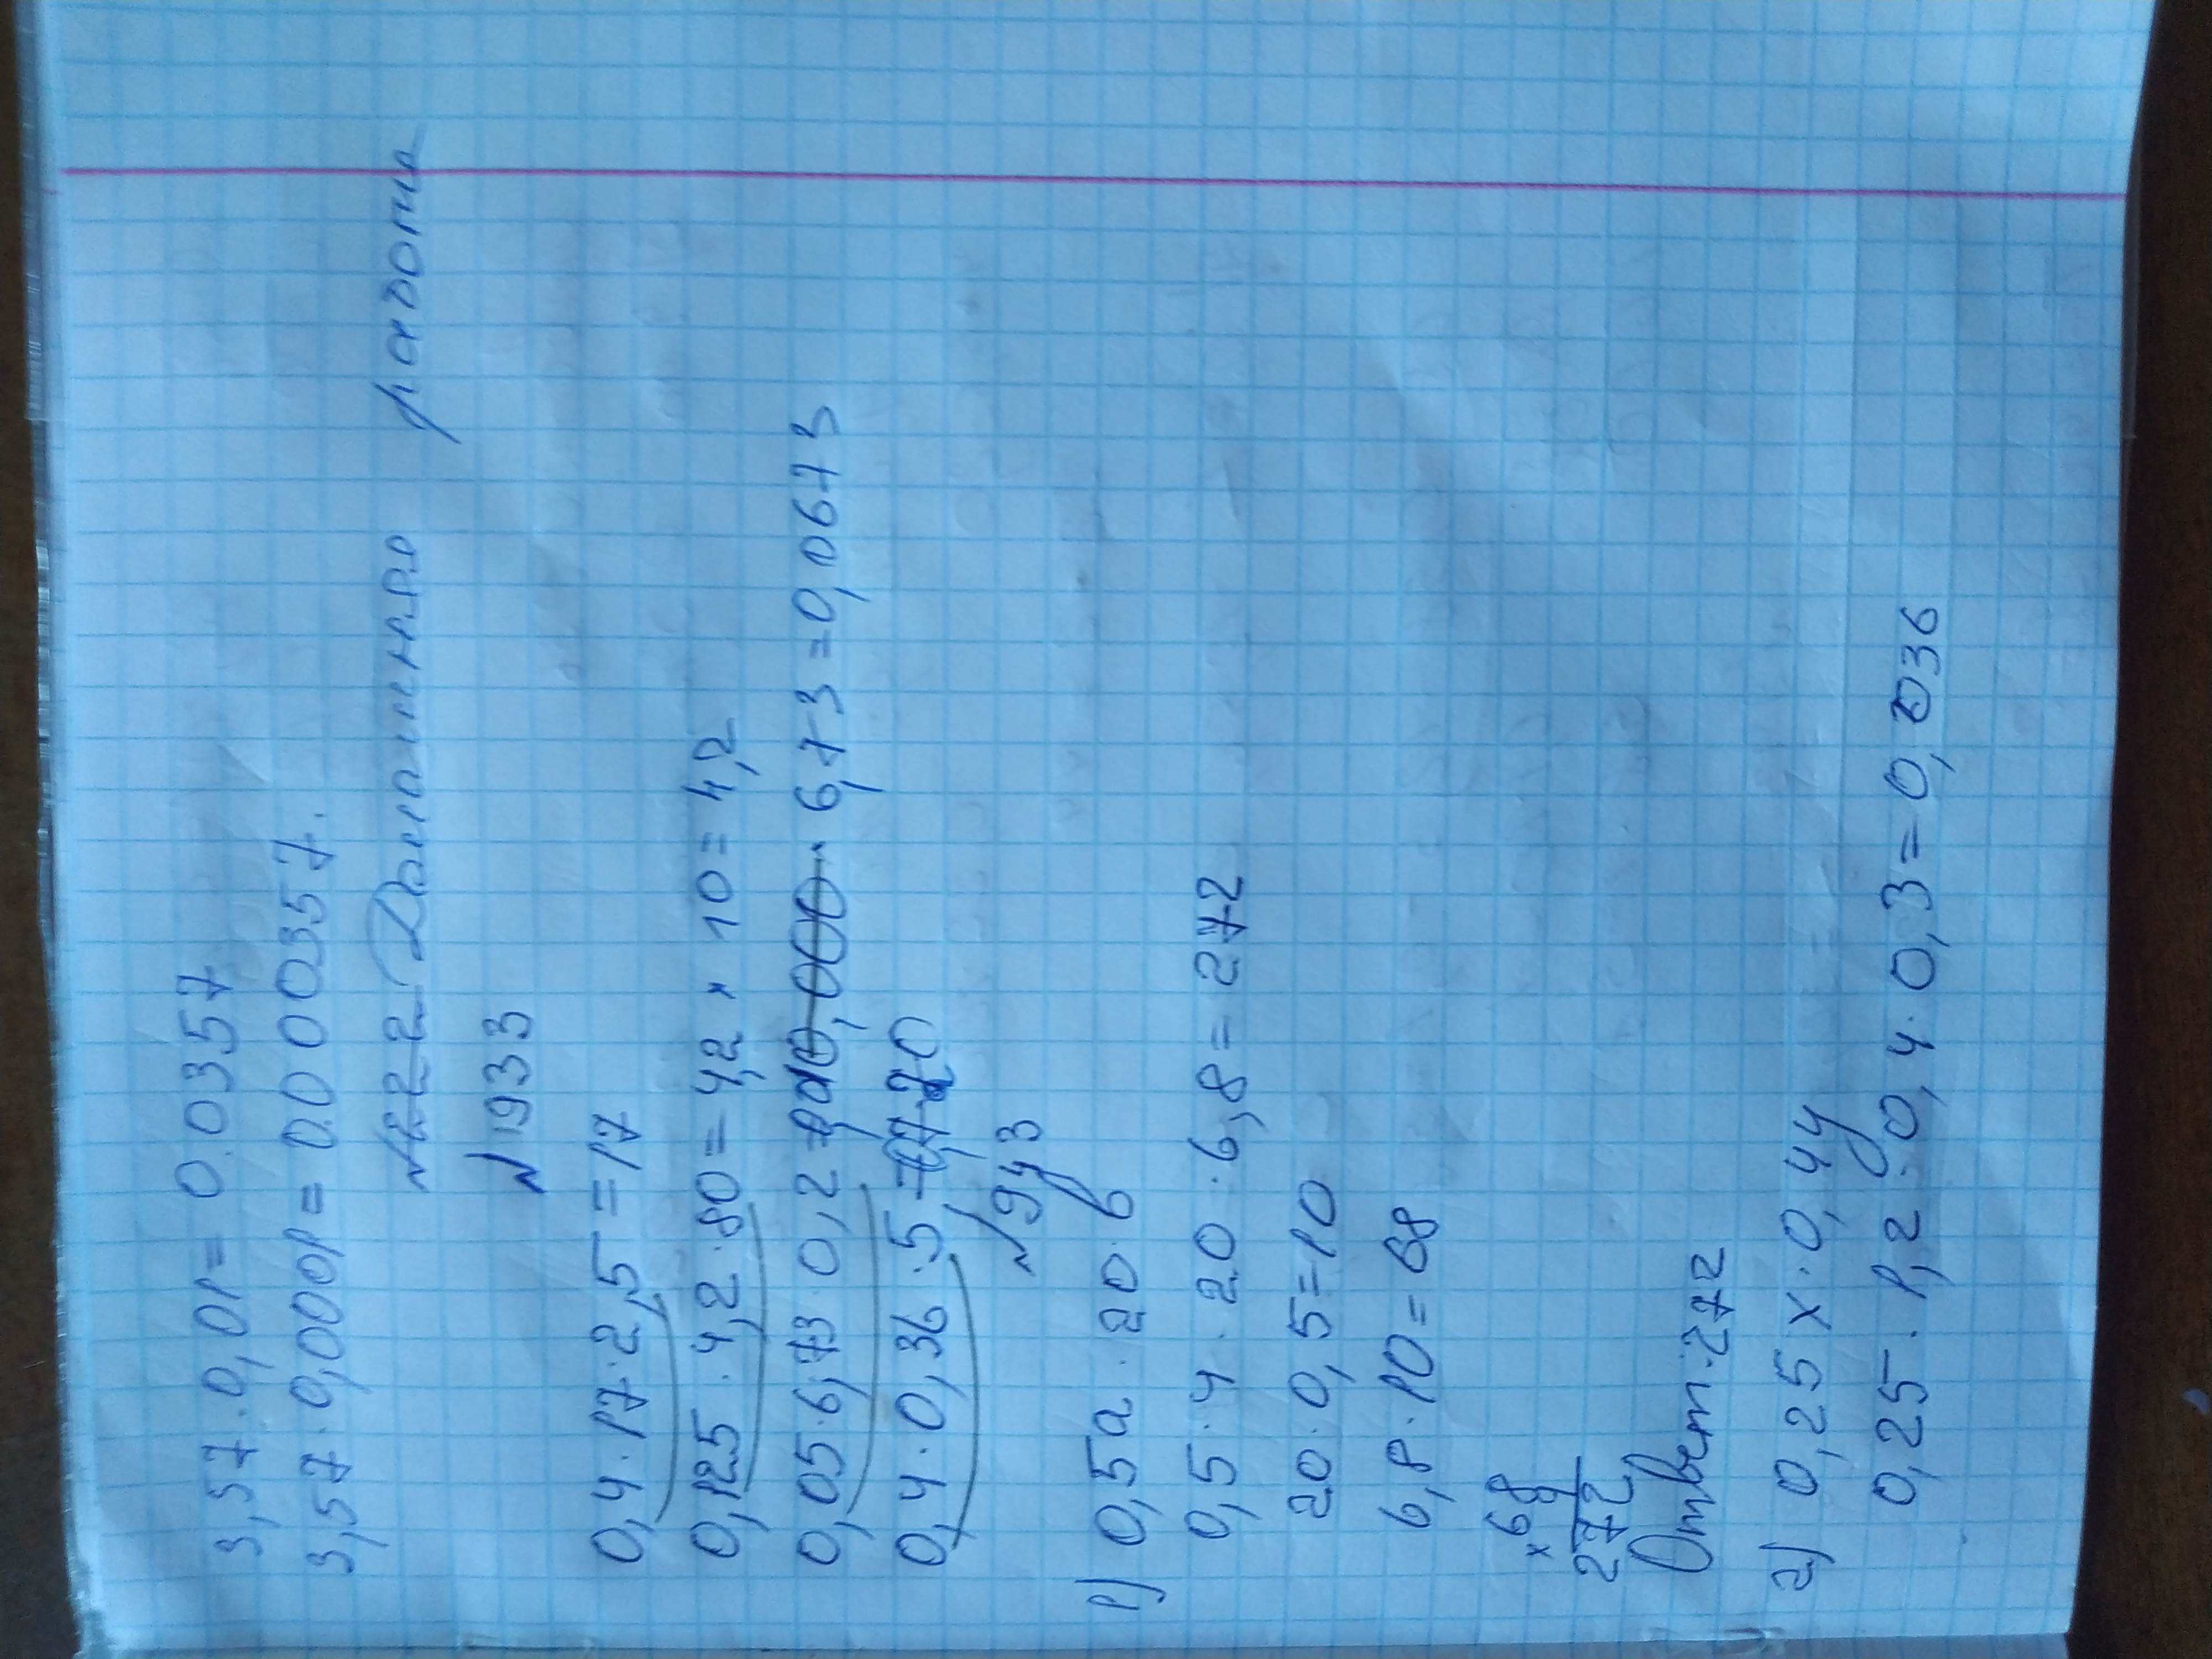 3,57·0,01=0.0357
3,57·0,0001=0.000357.
№622 Домашняя работа
№933
0,4·17·2,5=17
0,125·4,2·80=4,2×10=4,2
0,05·6,73·0,2= 6,73=0,0673
0,4·0,36·5=0,720
№943
1) 0,5a·20·b
0,5·4·20·6,8=272
20·0,5=10
6,8·10=68
×68
272
Ответ:272
2) 0,25x·0,4y
0,25·1,2·0,4·0,3=0,036